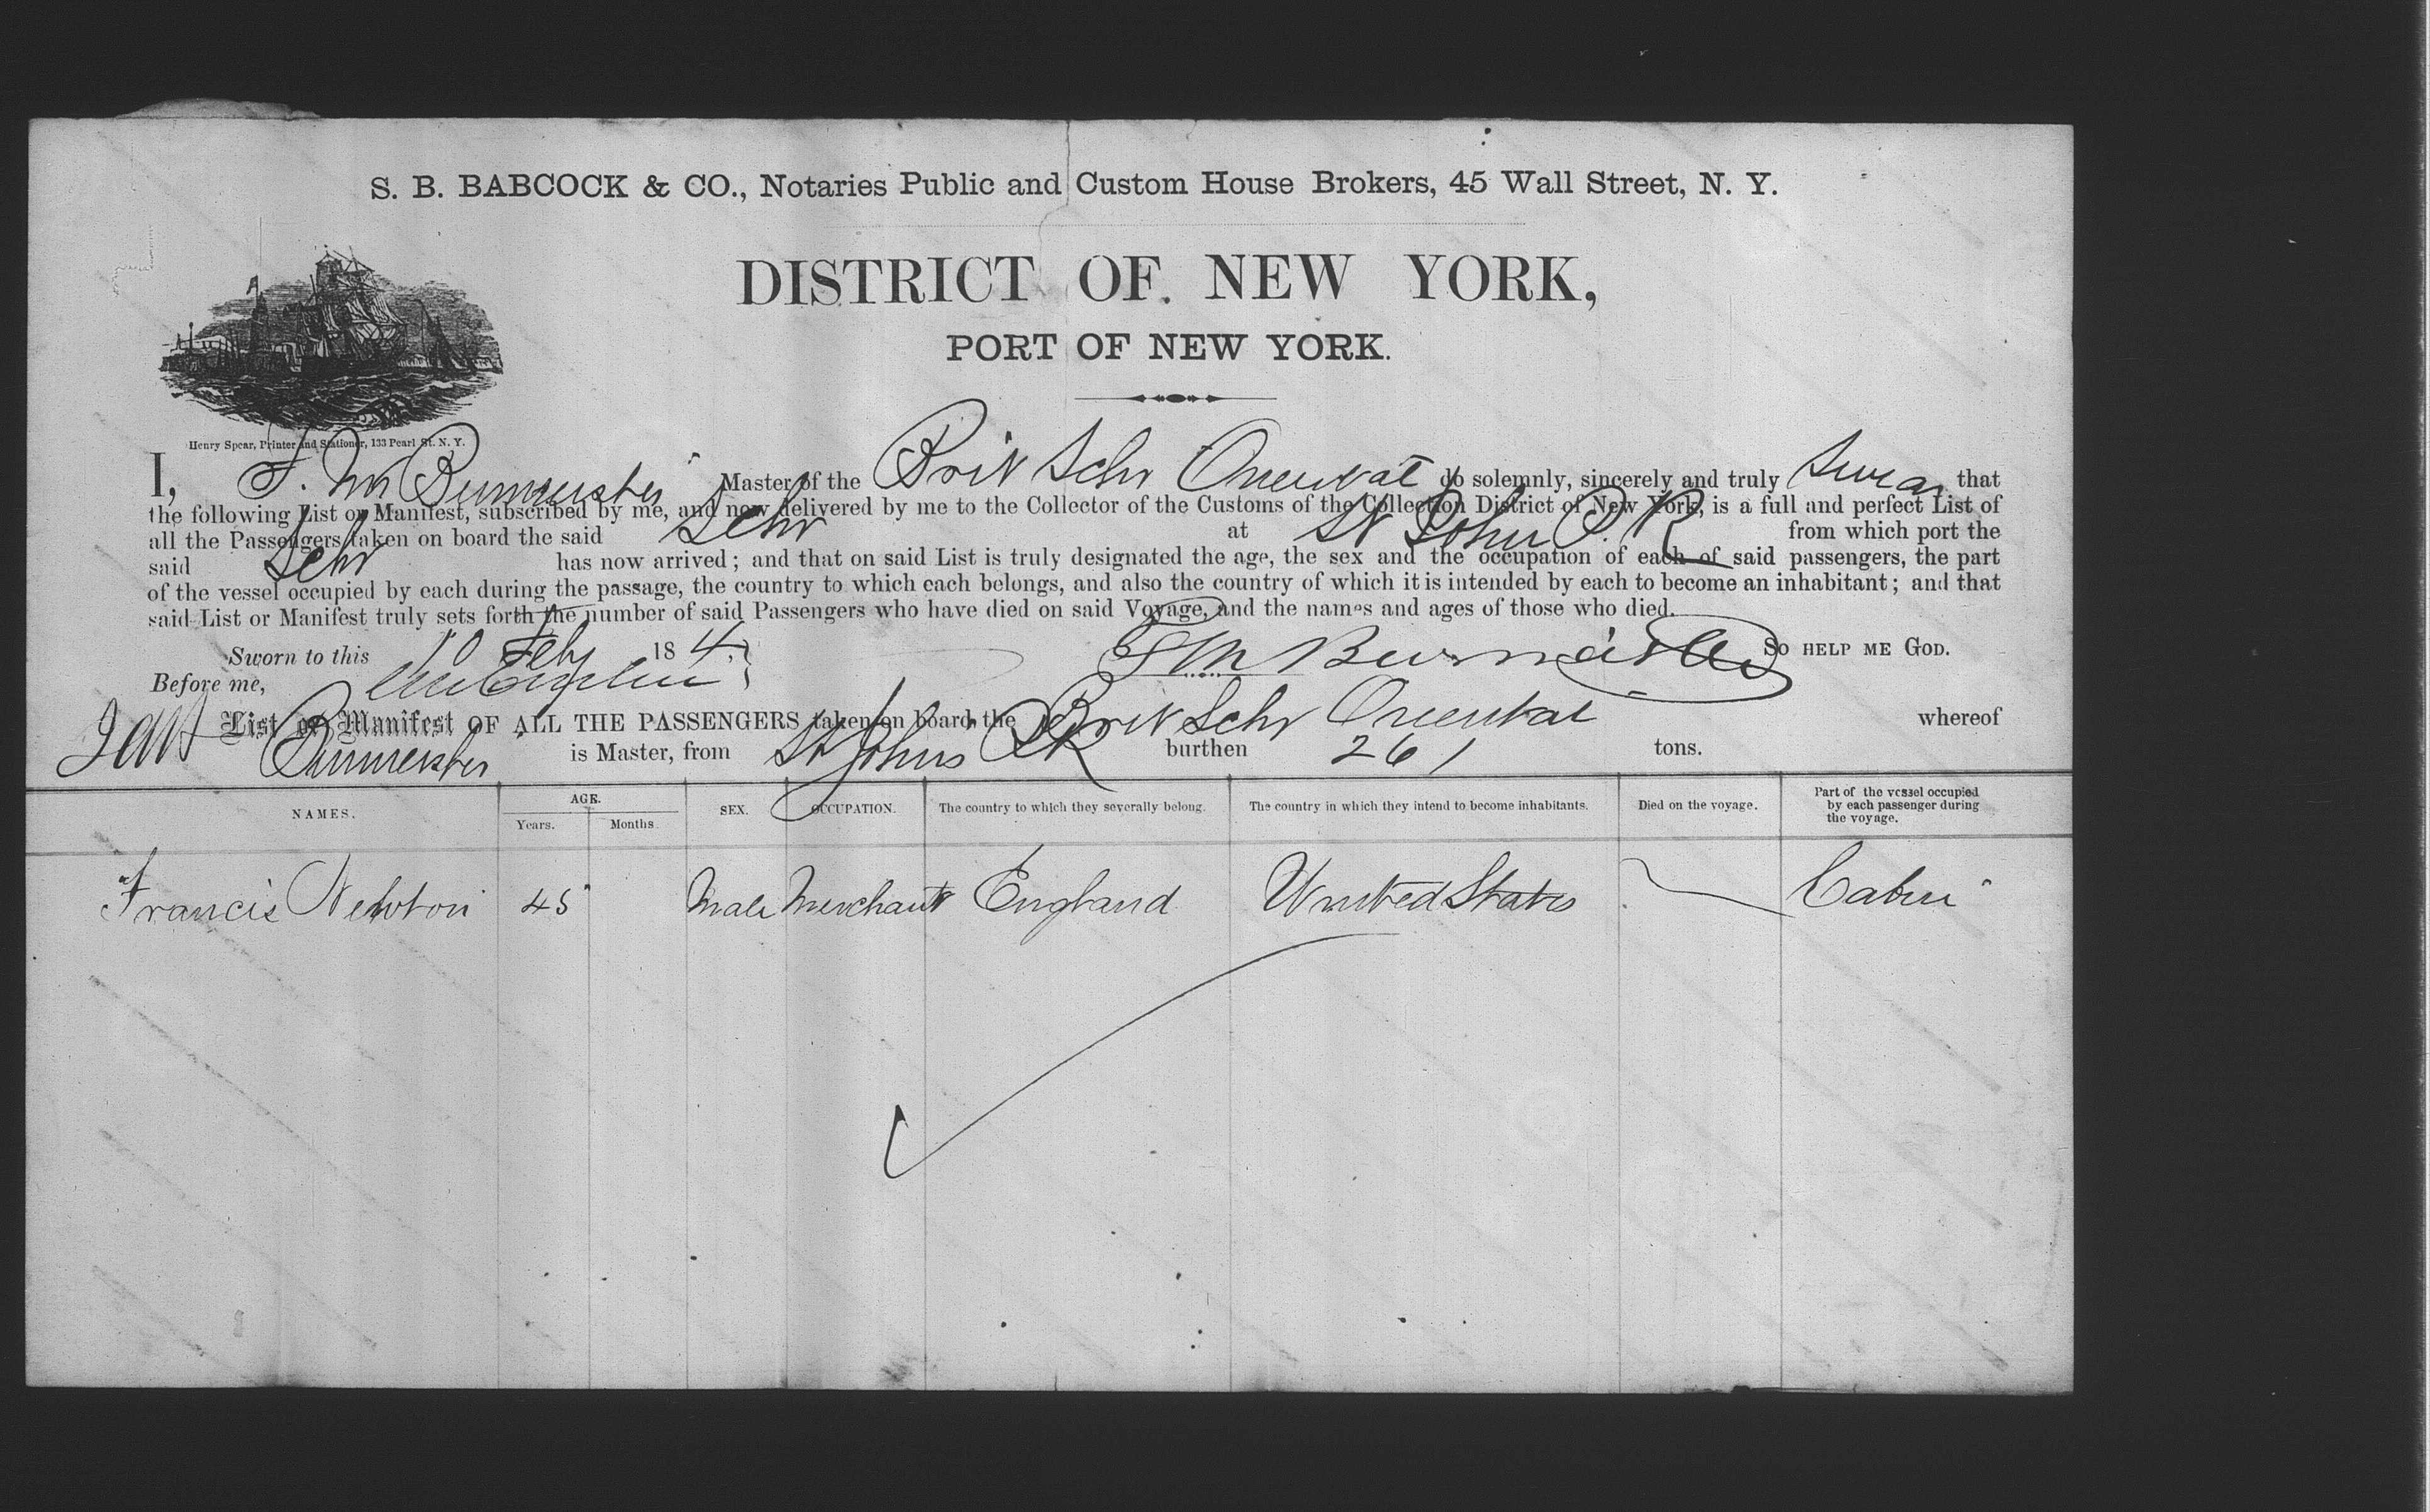 S. B. BABCOCK & CO., Notaries Public and Custom House Brokers, 45 Wall Street, N. Y.
DISTRICT OF NEW YORK,
PORT OF NEW YORK.
Henry Spear, Printer and Stationer, 133 Pearl St. N. Y.
I, Burmeister Master of the Brit Schr Oriental do solemnly, sincerely and truly swear that
the following List or Manifest, subscribed by me, and now delivered by me to the Collector of the Customs of the Collection District of New York, is a full and perfect List of
all the Passengers taken on board the said Schr at St John P. R from which port the
said Schr has now arrived; and that on said List is truly designated the age, the sex and the occupation of each of said passengers, the part
of the vessel occupied by each during the passage, the country to which each belongs, and also the country of which it is intended by each to become an inhabitant; and that
said List or Manifest truly sets forth the number of said Passengers who have died on said Voyage, and the names and ages of those who died.
Sworn to this 10 Feby 18 So HELP ME GOD.
Before me,
List or Manifest OF ALL THE PASSENGERS taken on board the Brit Schr Oriental whereof
Burmeister is Master, from St Johns PR burthen 261 tons.
NAMES. AGE. Years. Months. SEX. OCCUPATION. The country to which they severally belong. The country in which they intend to become inhabitants. Died on the voyage. Part of the vessel occupied by each passenger during the voyage.
Francis Newton 45 Male Merchant England United States Cabin